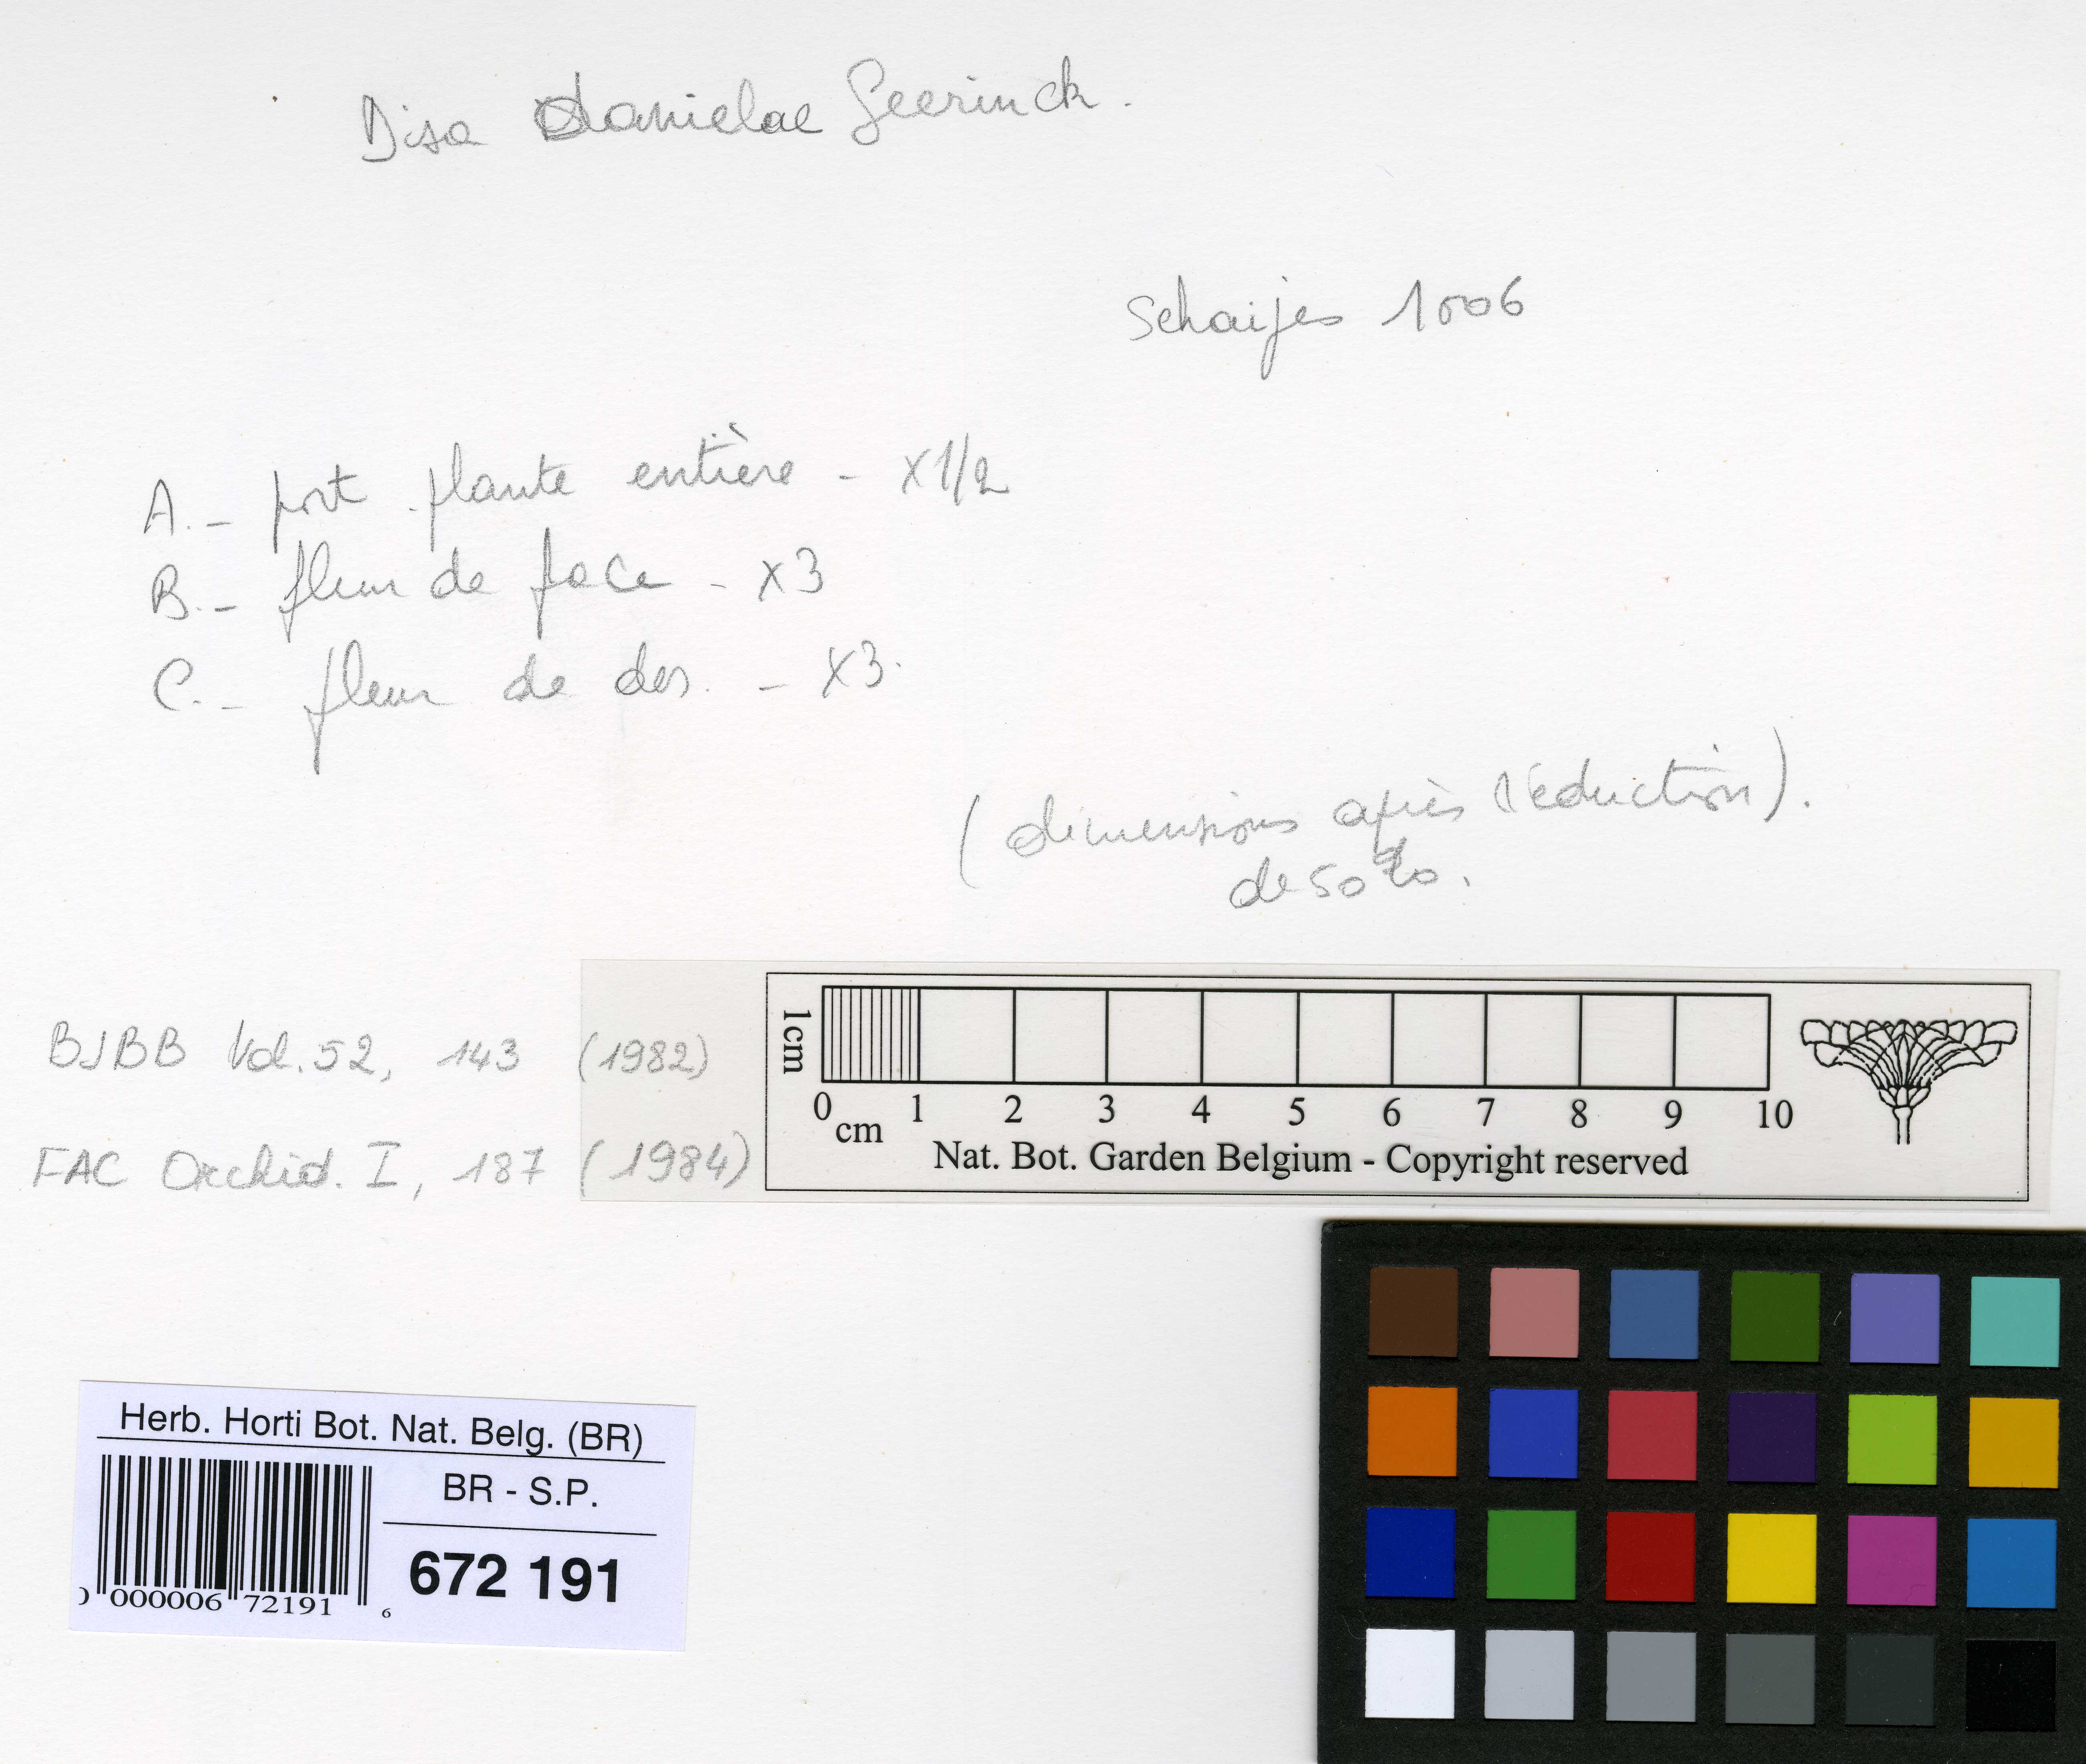 Disa danielae Geerinck.
Schaijes 1006
A. - port plante entière - x1/2
B. - fleur de face - x3
C. - fleur de dos. - x3.
(dimensions après réduction).
de 50%.
BJBB Vol. 52, 143 (1982)
FAC Orchid. I, 187 (1984)
1cm
0 1 2 3 4 5 6 7 8 9 10
cm
Nat. Bot. Garden Belgium - Copyright reserved
Herb. Horti Bot. Nat. Belg. (BR)
BR - S.P.
672 191
0 000006 72191 6